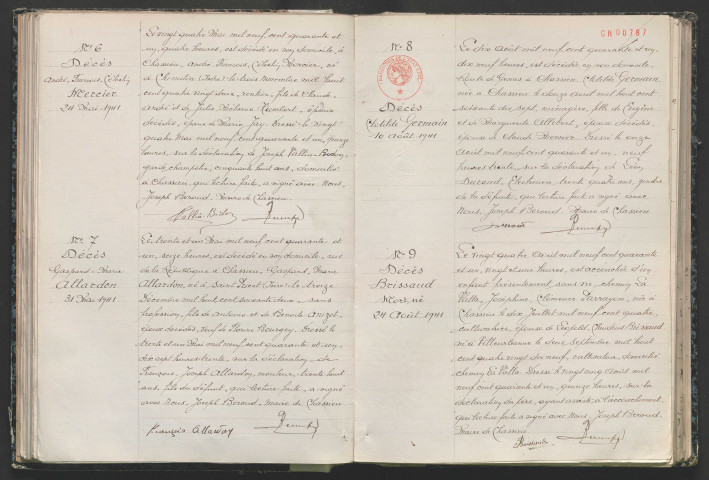 N° 6
Décès
Mercier
24 Mai 1941
Le vingt quatre Mai mil neuf cent quarante et
un, quatre heures, est décédé en son domicile, à
Chassieu, André François
de
cent quatre vingt deux, rentier, fils de Claude
André et de Julie
décédés, époux de Marie Jay. Dressé le vingt
quatre Mai mil neuf cent quarante et un, quinze
heures, sur la déclaration de Joseph
garde champêtre, cinquante huit ans, domicilié
à Chassieu, qui lecture faite, a signé avec Nous,
Joseph Beroud, Maire de Chassieu.
N° 7
Décès
Gaspard Marie
Allardon
31 Mai 1941
Le trente et un Mai mil neuf cent quarante et
un, seize heures, est décédé en son domicile, rue
de la République à Chassieu, Gaspard Marie
Allardon, né à Saint Priest Isère le treize
Décembre mil huit cent soixante deux, sans
profession, fils de Antoine et de Benoite
tous décédés, veuf de Pierrette Bourgey. Dressé le
trente et un Mai mil neuf cent quarante et un,
dix sept heures trente, sur la déclaration de
François Joseph Allardon, monteur, trente huit
ans, fils du défunt, qui lecture faite, a signé
avec Nous, Joseph Beroud, Maire de Chassieu
François Allardon
GN00787
N° 8
Décès
Clotilde Germain
10 Août 1941
Le dix Août mil neuf cent quarante et un,
dix neuf heures, est décédée en son domicile
Route de Genas à Chassieu, Clotilde Germain,
née à Chassieu le douze Avril mil huit cent
soixante dix sept, ménagère, fille de Eugène
et de Marguerite
épouse de Claude Mercier. Dressé le onze
Août mil neuf cent quarante et un, neuf
heures trente, sur la déclaration de Léon
Durand, Electricien, trente quatre ans, gendre
de la défunte, qui lecture faite a signé avec
Nous, Joseph Beroud, Maire de Chassieu
N° 9
Décès
Brissaud
Mort né
24 Août 1941
Le vingt quatre Août mil neuf cent quarante
et un, vingt et une heures, est accouchée d'un
enfant présentement sans vie, chemin La
Valla, Joséphine Clémence Parrayon, née à
Chassieu le dix Juillet mil neuf cent quatre,
cultivatrice, épouse de Léopold Brissaud
né à Villeurbanne le deux Septembre mil huit
cent quatre vingt dix neuf, cultivateur, domiciliés
chemin la Valla. Dressé le vingt cinq Août mil
neuf cent quarante et un, quinze heures, sur la
déclaration du père, ayant assisté à l'accouchement,
qui lecture faite a signé avec Nous, Joseph Beroud,
Maire de Chassieu
Brissaud